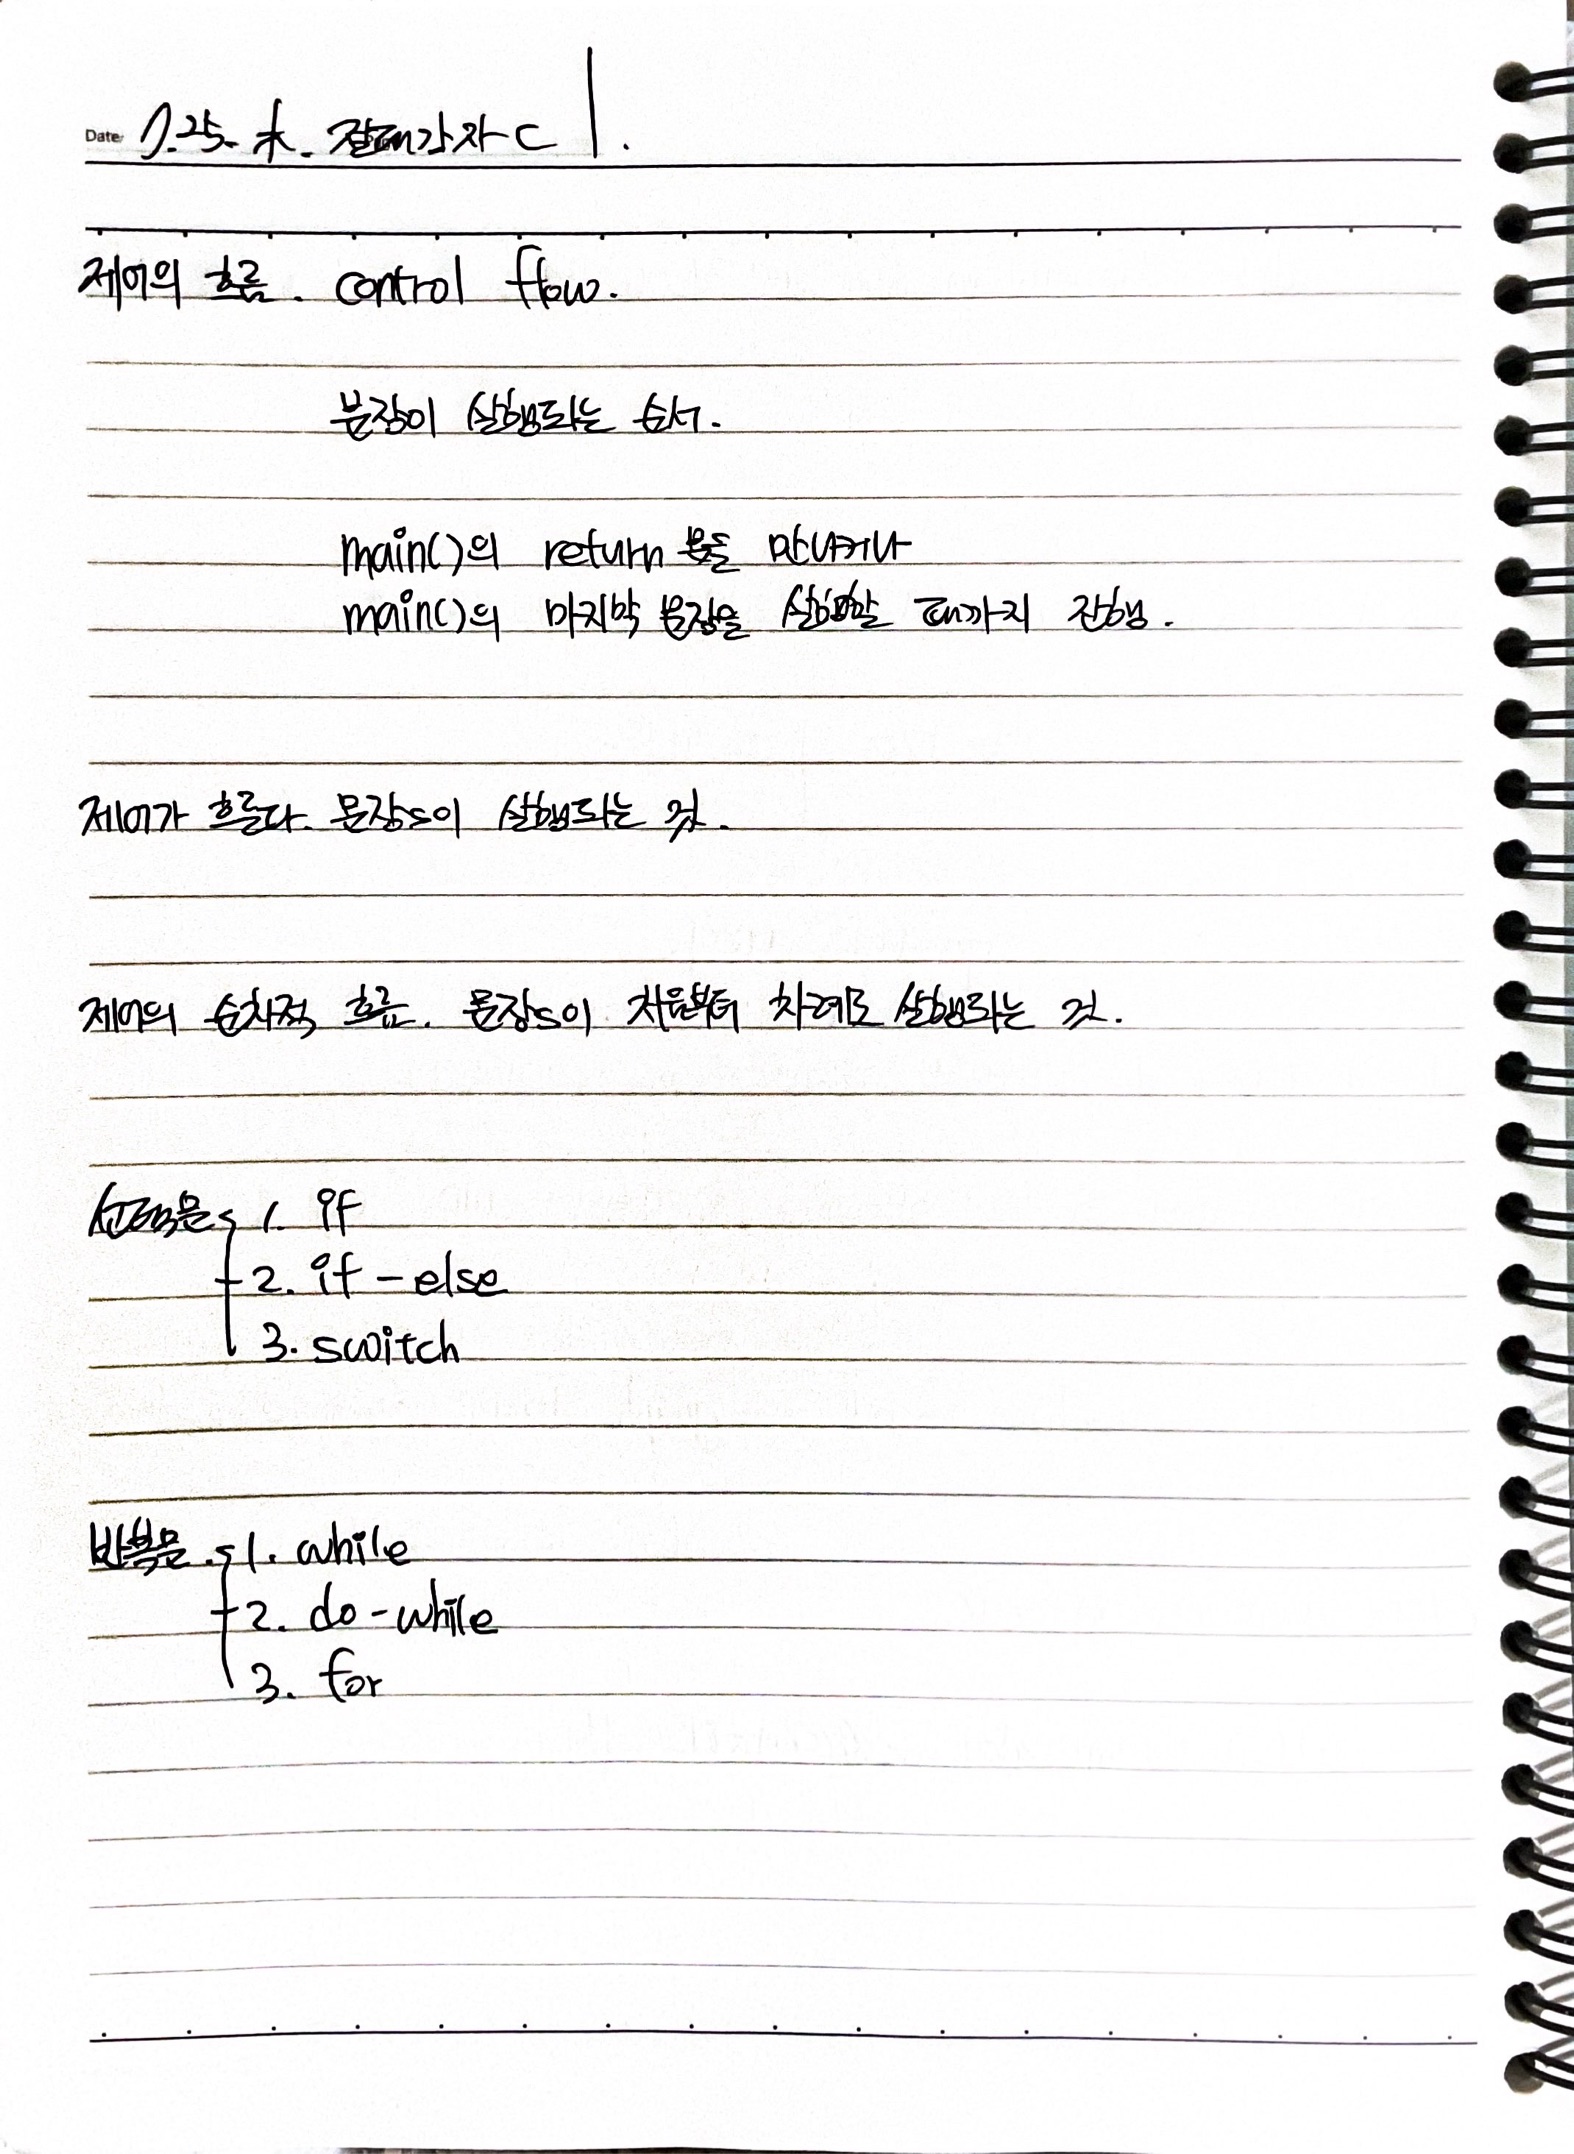 Date: 7.25. 木. 절대강자 C |.
제어의 흐름. control flow.
문장이 실행되는 순서.
main()의 return 문을 만나거나
main()의 마지막 문장을 실행할 때까지 진행.
제어가 흐른다. 문장s이 실행되는 것.
제어의 순차적 흐름. 문장s이 처음부터 차례로 실행되는 것.
선택문 1. if
2. if - else
3. switch
반복문. 1. while
2. do - while
3. for